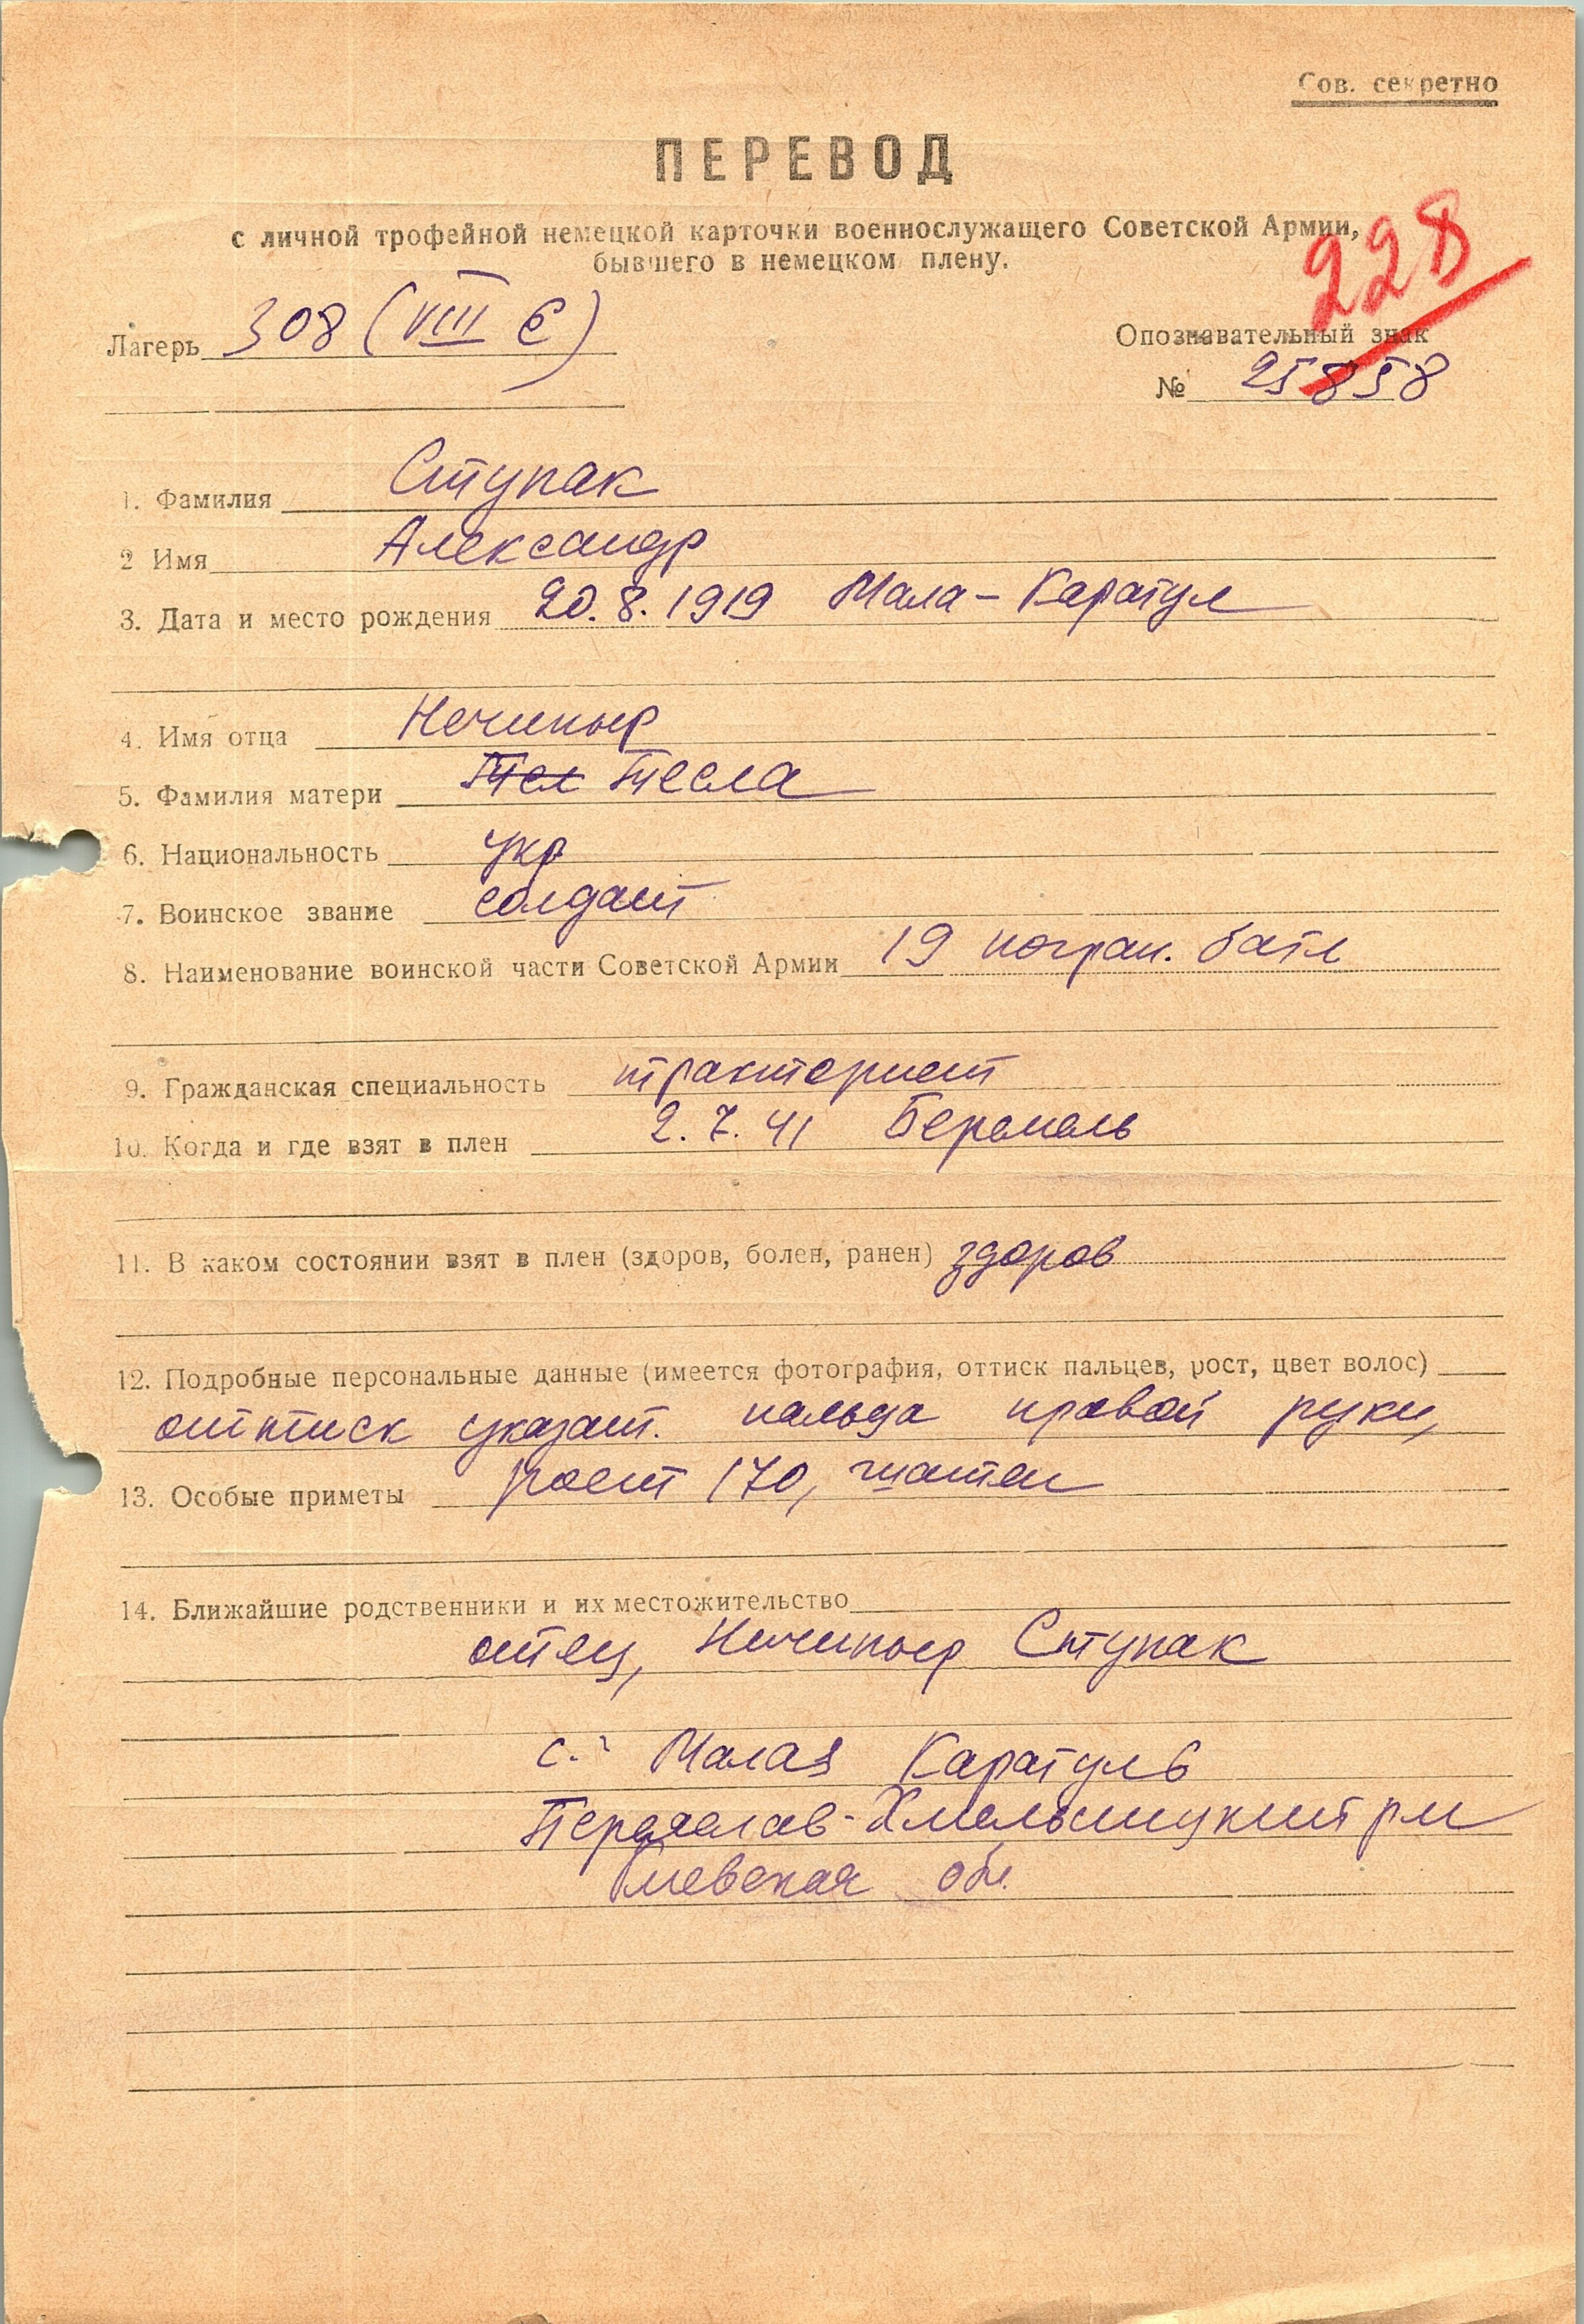 Сов. секретно
ПЕРЕВОД
с личной трофейной немецкой карточки военнослужащего Советской Армии,
бывшего в немецком плену.
228
Лагерь 308 (VIII E)
Опознавательный знак
№ 25858
1. Фамилия Ступак
2 Имя Александр
3. Дата и место рождения 20.8.1919 Мала-Каратул
4. Имя отца Нечипыр
5. Фамилия матери Тесла
6. Национальность укр
7. Воинское звание солдат
8. Наименование воинской части Советской Армии 19 погран. батл
9. Гражданская специальность тракторист
10. Когда и где взят в плен 2.7.41
11. В каком состоянии взят в плен (здоров, болен, ранен) здоров
12. Подробные персональные данные (имеется фотография, оттиск пальцев, рост, цвет волос)
оттиск указат. пальца правой руки,
13. Особые приметы рост 170, шатен
14. Ближайшие родственники и их местожительство
отец, Нечипыр Ступак
с. Малая Каратуль
Переяслав-Хмельницкий рн
Киевская обл.